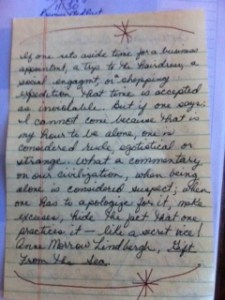 If one sets aside time for a business
appointment, a trip to the hairdresser, a
social engagement, or shopping
expedition, that time is accepted
as inviolable. But if one says:
I cannot come because that is
my hour to be alone, one is
considered rude, egotistical or
strange. What a commentary
on our civilization, when being
alone is considered suspect; when
one has to apologize for it, make
excuses, hide the fact that one
practices it — like a secret vice!
Anne Morrow Lindbergh, Gift
From the Sea